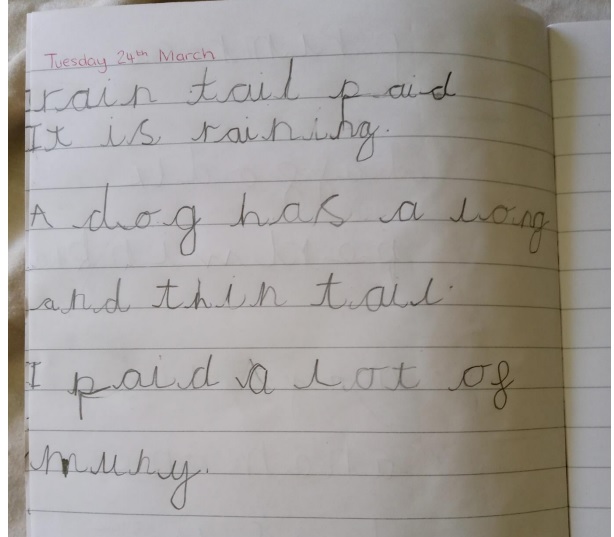 Tuesday 24th March
rain tail paid
It is raining.
A dog has a long
and thin tail.
I paid a lot of
muny.